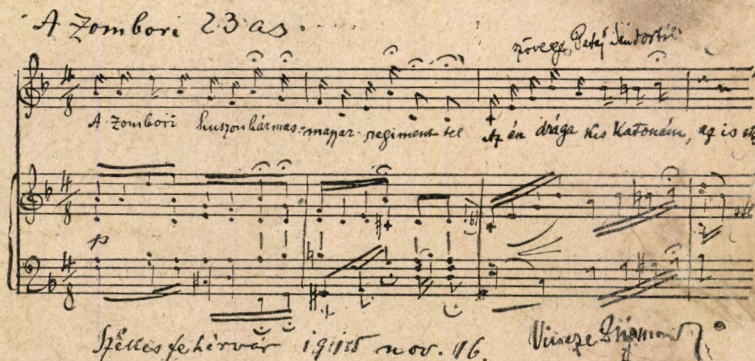 A Zombori 23 as.
szövege, Petej Sándortól
A Zombori huszonhármas magyar regiment tel Az én drága kis Katonám, az is ott
p
Székesfehérvár 1915 nov. 16. Vincze Zsigmond